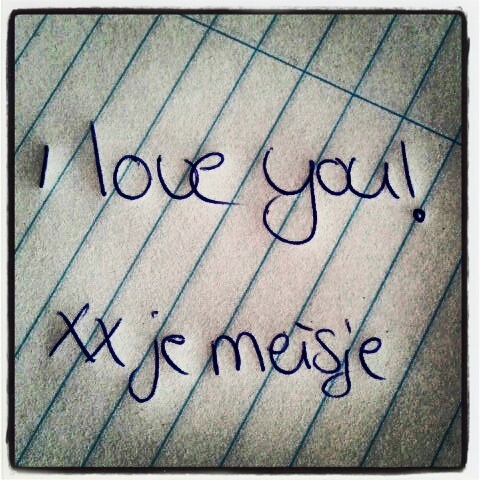 I love you!
xx je meisje